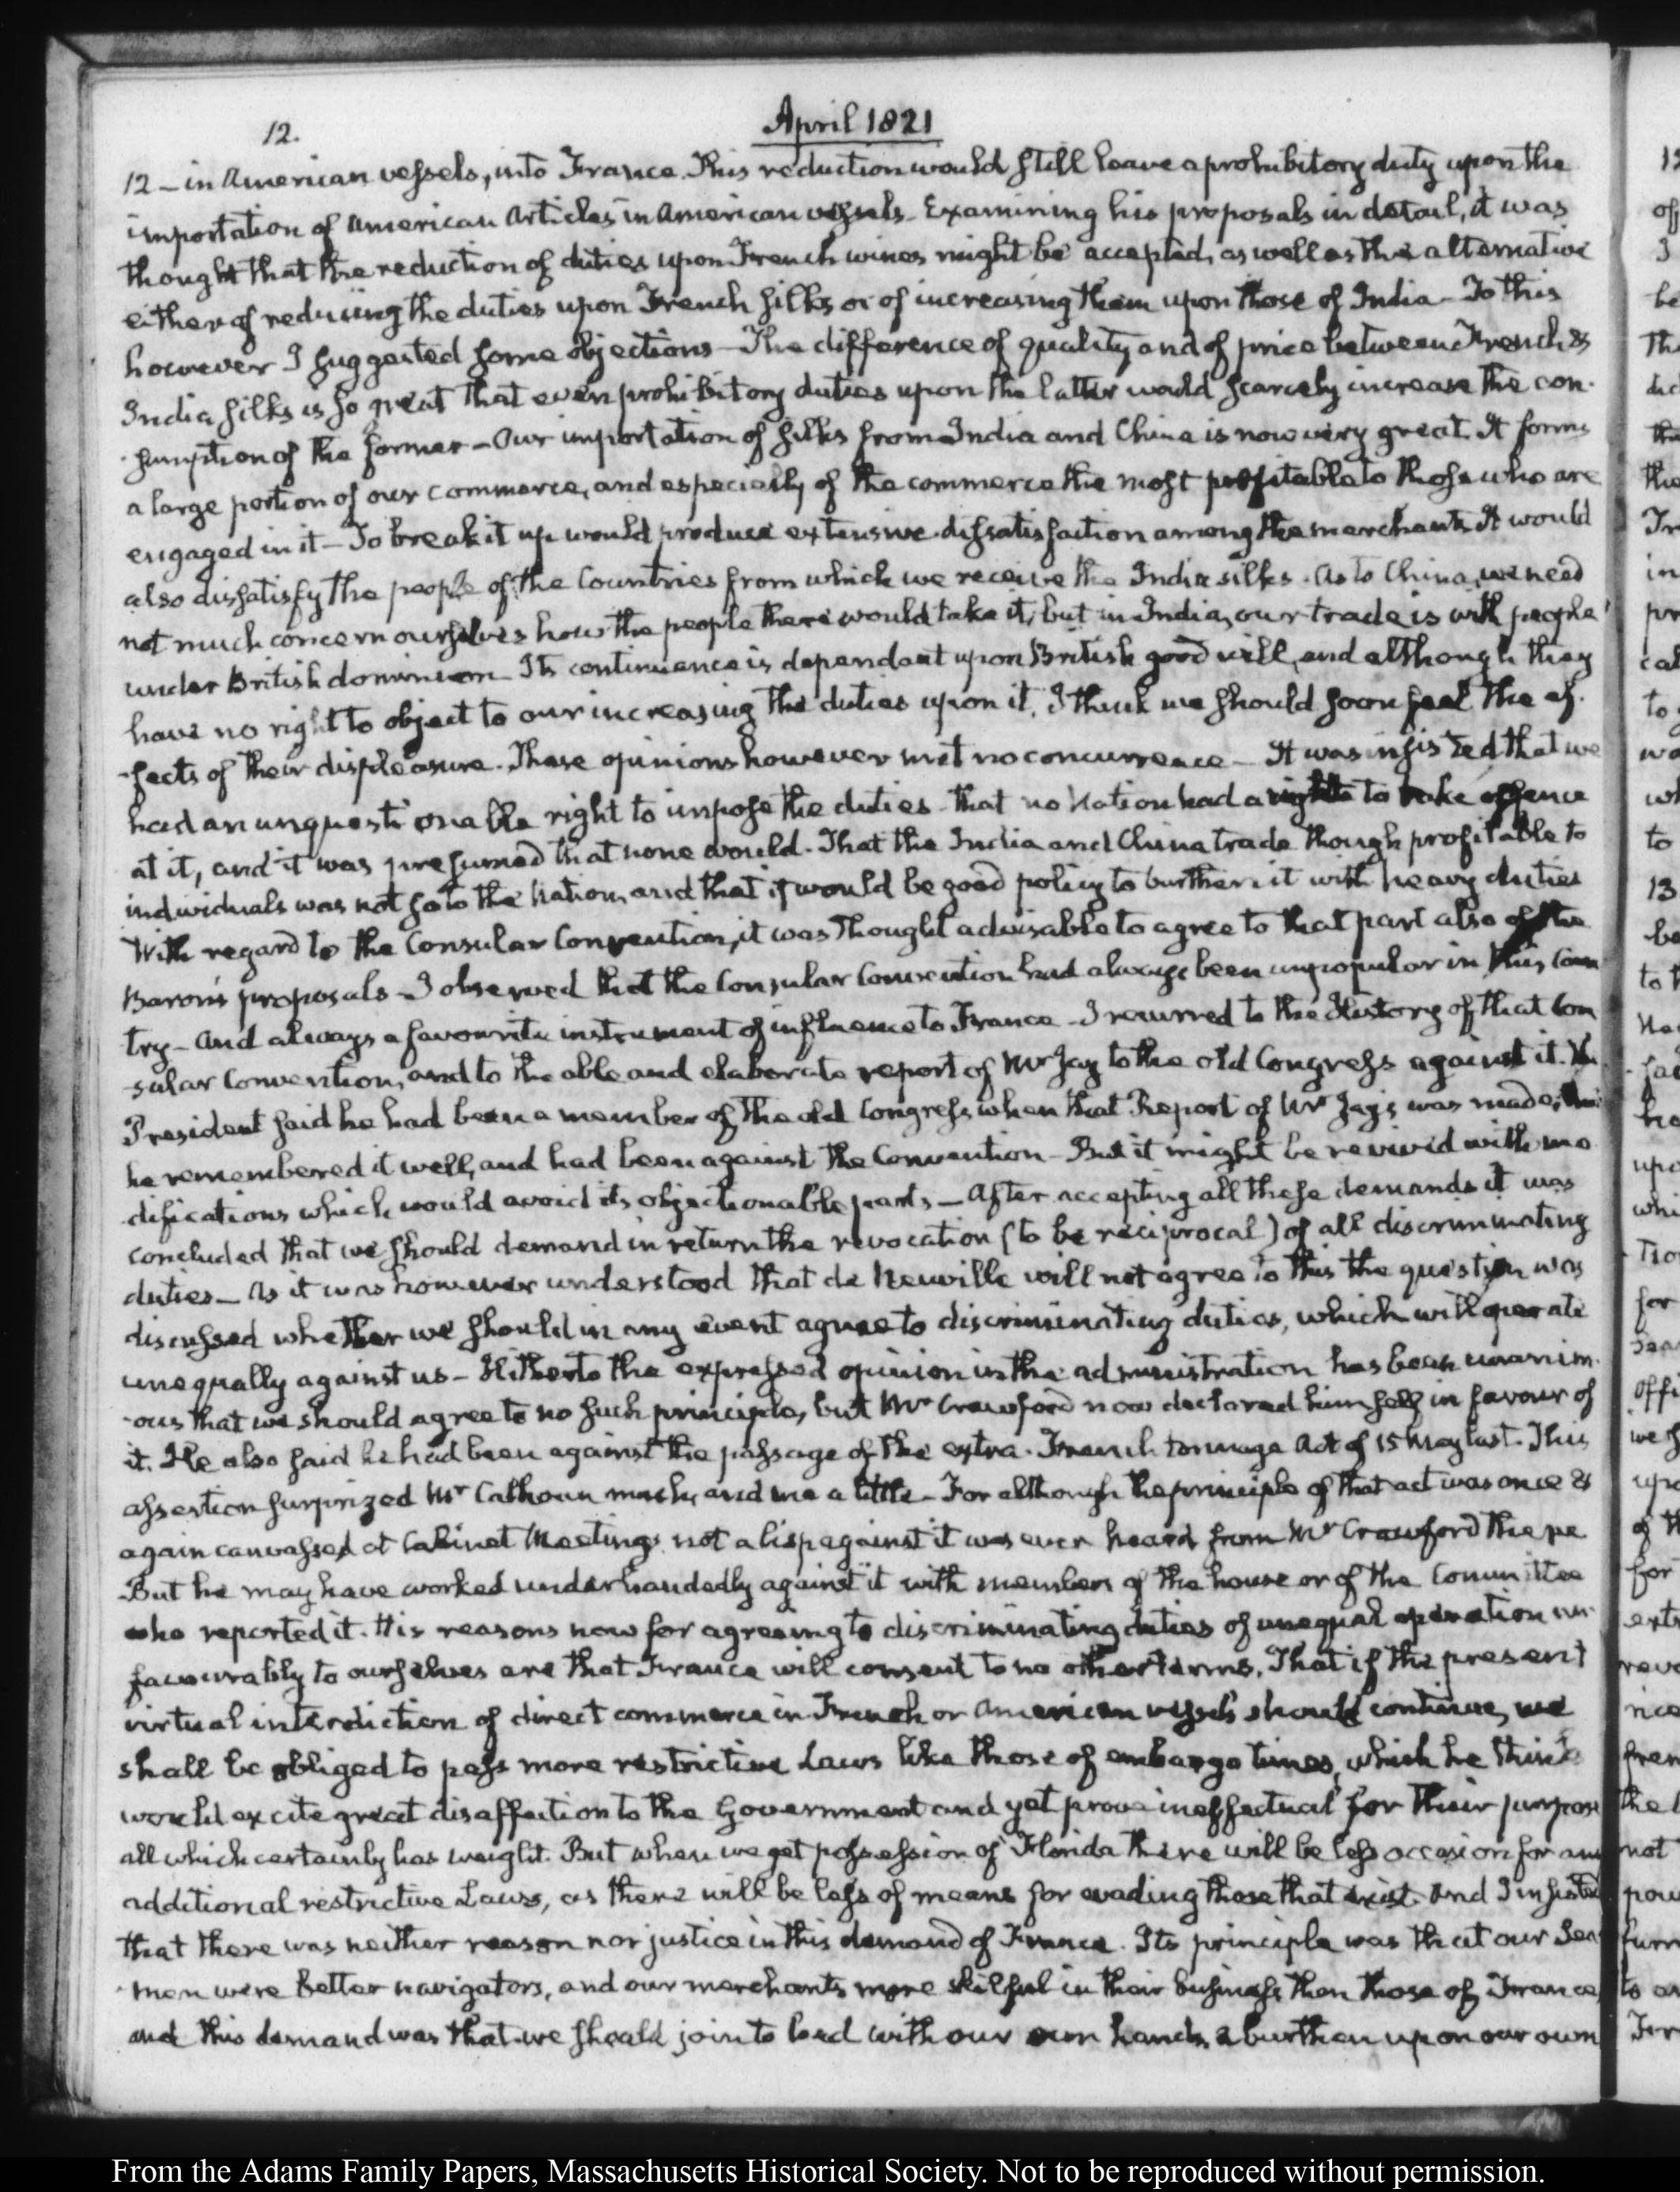 12.
April 1821
12 – in American vessels, into France. This reduction would still leave a prohibitory duty upon the
importation of American Articles in American vessels. Examining his proposals in detail, it was
thought that the reduction of duties upon French wines might be accepted, as well as the alternative
either of reducing the duties upon French silks or of increasing them upon those of India – To this
however I suggested some objections – The difference of quality and of price between French &
India silks is so great that even prohibitory duties upon the latter would scarcely increase the con-
-sumption of the former – Our importation of silks from India and China is now very great. It forms
a large portion of our commerce, and especially of the commerce the most profitable to those who are
engaged in it – To break it up would produce extensive dissatisfaction among the merchants. It would
also dissatisfy the people of the Countries from which we receive the India silks. As to China, we need
not much concern ourselves how the people there would take it, but in India, our trade is with people
under British dominion. Its continuance is dependent upon British good will, and although they
have no right to object to our increasing the duties upon it, I think we should soon feel the ef-
-fects of their displeasure. These opinions however met no concurrence – It was insisted that we
had an unquestionable right to impose the duties – that no Nation had a right to take offence
at it, and it was presumed that none would. That the India and China trade though profitable to
individuals was not so to the Nation, and that it would be good policy to burthen it with heavy duties
With regard to the Consular Convention, it was thought advisable to agree to that part also of the
Baron's proposals – I observed that the Consular Convention had always been unpopular in this Coun
try – And always a favourite instrument of influence to France – I recurred to the History of that Con
-sular Convention, and to the able and elaborate report of Mr Jay to the old Congress against it. The
President said he had been a member of the old Congress when that Report of Mr Jay's was made;
he remembered it well, and had been against the Convention – But it might be revived with mo
difications which would avoid its objectionable parts – After accepting all these demands it was
concluded that we should demand in return the revocation (to be reciprocal) of all discriminating
duties – As it was however understood that de Neuville will not agree to this the question was
discussed whether we should in any event agree to discriminating duties, which will operate
unequally against us – Hitherto the expressed opinion in the administration has been unanim-
-ous that we should agree to no such principle, but Mr Crawford now declared himself in favour of
it. He also said he had been against the passage of the extra-French tonnage Act of 15 May last. This
assertion surprized Mr Calhoun much, and me a little – For although the principle of that act was once &
again canvassed at Cabinet Meetings not a lisp against it was ever heard from Mr Crawford there
But he may have worked underhandedly against it with members of the house or of the Committee
who reported it. His reasons now for agreeing to discriminating duties of unequal operation un-
favourably to ourselves are that France will consent to no other terms. That if the present
virtual interdiction of direct commerce in French or American vessels should continue, we
shall be obliged to pass more restrictive Laws like those of embargo times, which he thinks
would excite great disaffection to the Government and yet prove ineffectual for their purpose
all which certainly has weight. But when we get possession of Florida there will be less occasion for any
additional restrictive Laws, as there will be less of means for evading those that exist. And I insisted
that there was neither reason nor justice in this demand of France. Its principle was that our Sea
-men were better navigators, and our merchants more skilful in their business than those of France,
and this demand was that we should join to load with our own hands a burthen upon our own
From the Adams Family Papers, Massachusetts Historical Society. Not to be reproduced without permission.